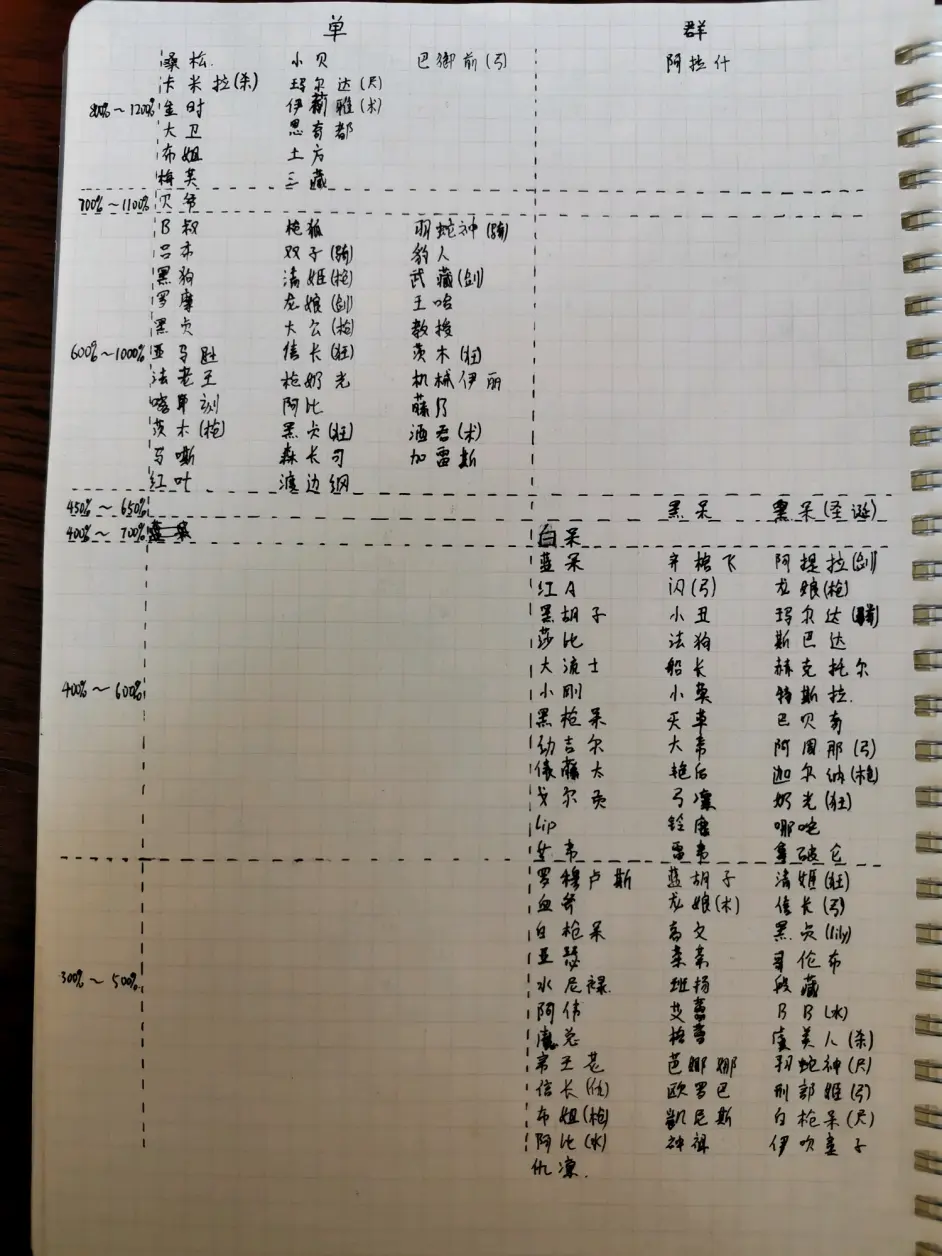 单 群
桑松 小贝 巴御前(弓) 阿拉什
卡米拉(杀) 玛尔达(尺)
800%~1200% 金时 伊莉雅(术)
大卫 恩奇都
布姐 土方
梅芙 三藏
700%~1100% 贝爷
B叔 枪狐 羽蛇神(骑)
吕布 双子(骑) 豹人
黑狗 清姬(枪) 武藏(剑)
罗摩 龙娘(剑) 王哈
黑贞 大公(枪) 教授
600%~1000% 亚马胜 信长(狂) 茨木(狂)
法老王 枪奶光 机械伊丽
喀耳刻 阿比 藤乃
茨木(枪) 黑贞(狂) 酒吞(术)
马嘶 森长可 加雷斯
红叶 渡边纲
450%~650% 黑呆 黑呆(圣诞)
400%~700% 白呆
蓝呆 开膛飞 阿提拉(剑)
红A 闪(弓) 龙娘(枪)
黑胡子 小丑 玛尔达(骑)
莎比 法狗 斯巴达
大流士 船长 赫克托尔
400%~600% 小刚 小莫 特斯拉
黑枪呆 天草 巴贝奇
幼吉尔 大帝 阿周那(弓)
俵藤太 艳后 迦尔纳(枪)
戈尔贡 弓凛 奶光(狂)
lip 铃鹿 哪吒
女帝 雷帝 拿破仑
罗穆卢斯 蓝胡子 清姬(狂)
血斧 龙娘(术) 信长(弓)
白枪呆 高文 黑贞(lily)
亚瑟 柔柔 哥伦布
300%~500% 水尼禄 班扬 段藏
阿伟 艾蕾 BB(水)
虞美人(杀)
帝王花 芭娜娜 羽蛇神(尺)
信长(仇) 欧罗巴 刑部姬(弓)
布姐(枪) 凯尼斯 白枪呆(尺)
阿比(水) 神祖 伊吹童子
仇凛.